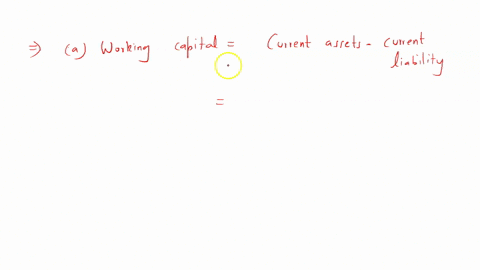 ⇒ (a) Working capital = Current assets - current liability
=